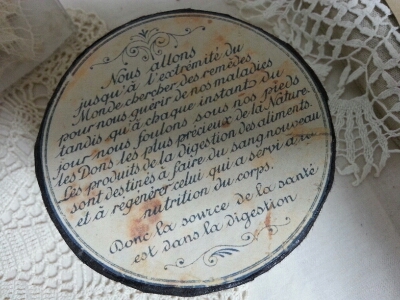 Nous allons
jusqu'à l'extrémité du
Monde chercher des remèdes
pour nous guérir de nos maladies
tandis qu'à chaque instant du
jour nous foulons sous nos pieds
les Dons les plus précieux de la Nature.
Les produits de la digestion des aliments.
sont destinés à faire du sang nouveau
et à régénérer celui qui a servi à la
nutrition du corps.
Donc la source de la santé
est dans la digestion